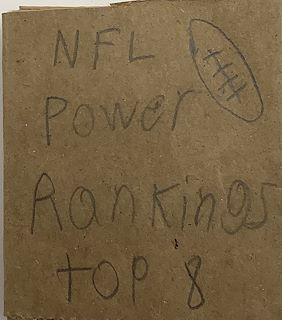 NFL
Power
Rankings
top 8